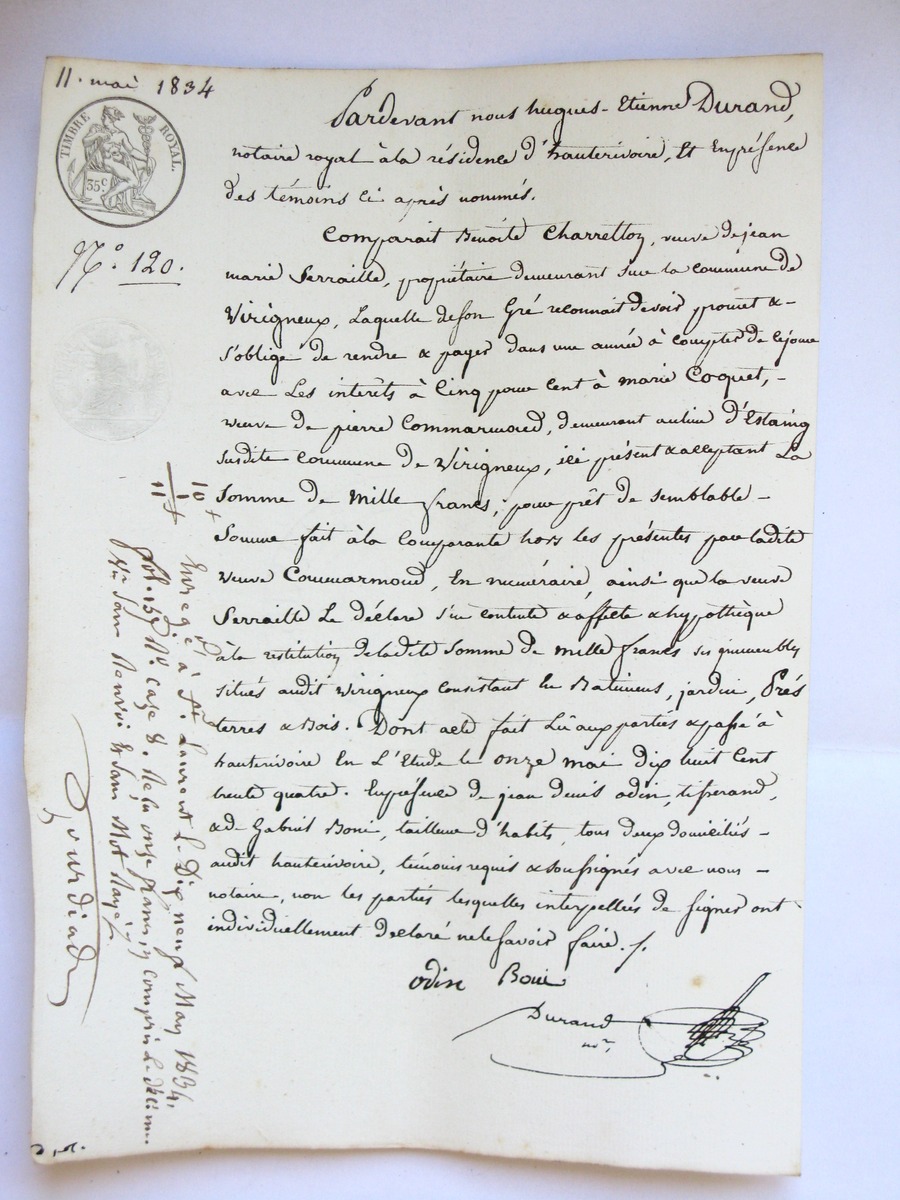 11. mai 1834
TIMBRE ROYAL.
35 c.
N.° 120.
Pardevant nous hugues-Etienne Durand,
notaire royal à la résidence d'hauterivoire, Et En présence
des témoins ci après nommés.
Comparait Benoite Charretton, veuve de jean
marie Serraille, propriétaire demeurant sur la commune de
Virigneux, Laquelle de son Gré reconnait devoir promet &-
s'oblige de rendre & payer dans une année à compter de ce jour
avec Les interêts à Cinq pour Cent à marie Coquet,-
veuve de pierre Commarmond, demeurant au lieu d'Estaing
susdite commune de Virigneux, ici présent & acceptant La
Somme de mille francs; pour prêt de semblable-
Somme fait à la Comparante hors les présentes par ladite
veuve Commarmond, En numéraire, ainsi que la veuve
Serraille Le déclare s'en contente & affecte & hypothèque
à la restitution de ladite Somme de mille francs ses immeubles
situés audit Virigneux consistant En Batimens, jardin, Prés
terres & Bois. Dont acte fait Lu aux parties & passé à
hauterivoire En L'Etude le onze mai dix huit Cent
trente quatre. En présence de jean denis odin, tisserand,
& de Gabriel Boni, tailleur d'habits, tous deux domiciliés-
audit hauterivoire, témoins requis & soussignés avec nous-
notaire, non les parties lesquelles interpellées de signer ont
individuellement declaré ne le savoir faire./.
odin Boni
Durand
nre
10
1
11
Enregé à St. Laurent Le Dix neuf May 1834,
fol. 159 Vo. Case 8. Reçu onze francs y compris Le décime
Sans Renvoi & Sans Mot Rayé